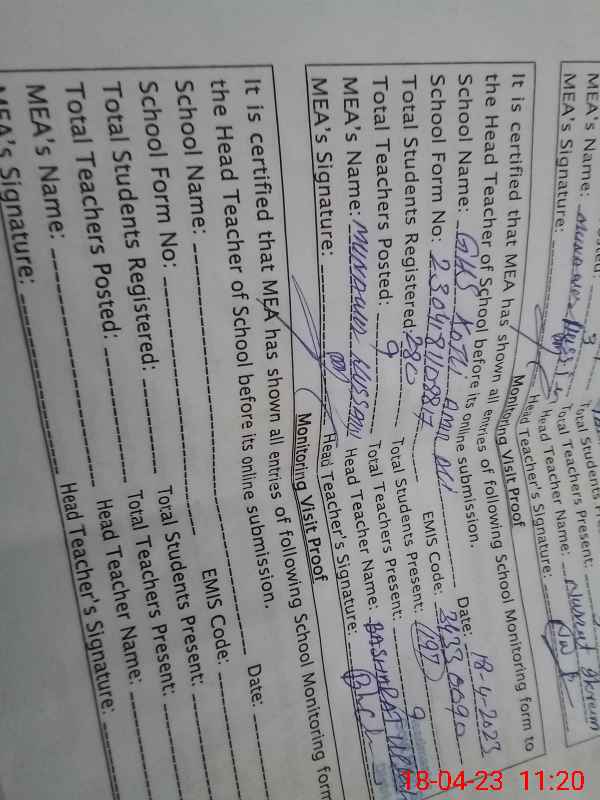 MEA's Name:
MEA's Signature:
3
Total Students
Total Teachers Present:
Head Teacher Name:
Head Teacher's Signature:
Monitoring Visit Proof
It is certified that MEA has shown all entries of following School Monitoring form to
the Head Teacher of School before its online submission. Date: 18-4-2023
School Name: GHS
School Form No: EMIS Code:
Total Students Registered: 280 Total Students Present: 197
Total Teachers Posted: 9 Total Teachers Present: 9
MEA's Name: Head Teacher Name: BASHARAT
MEA's Signature: Head Teacher's Signature:
Monitoring Visit Proof
It is certified that MEA has shown all entries of following School Monitoring form
the Head Teacher of School before its online submission. Date:
School Name: EMIS Code:
School Form No:
Total Students Registered: Total Students Present:
Total Teachers Posted: Total Teachers Present:
MEA's Name: Head Teacher Name:
MEA's Signature: Head Teacher's Signature:
18-04-23 11:20